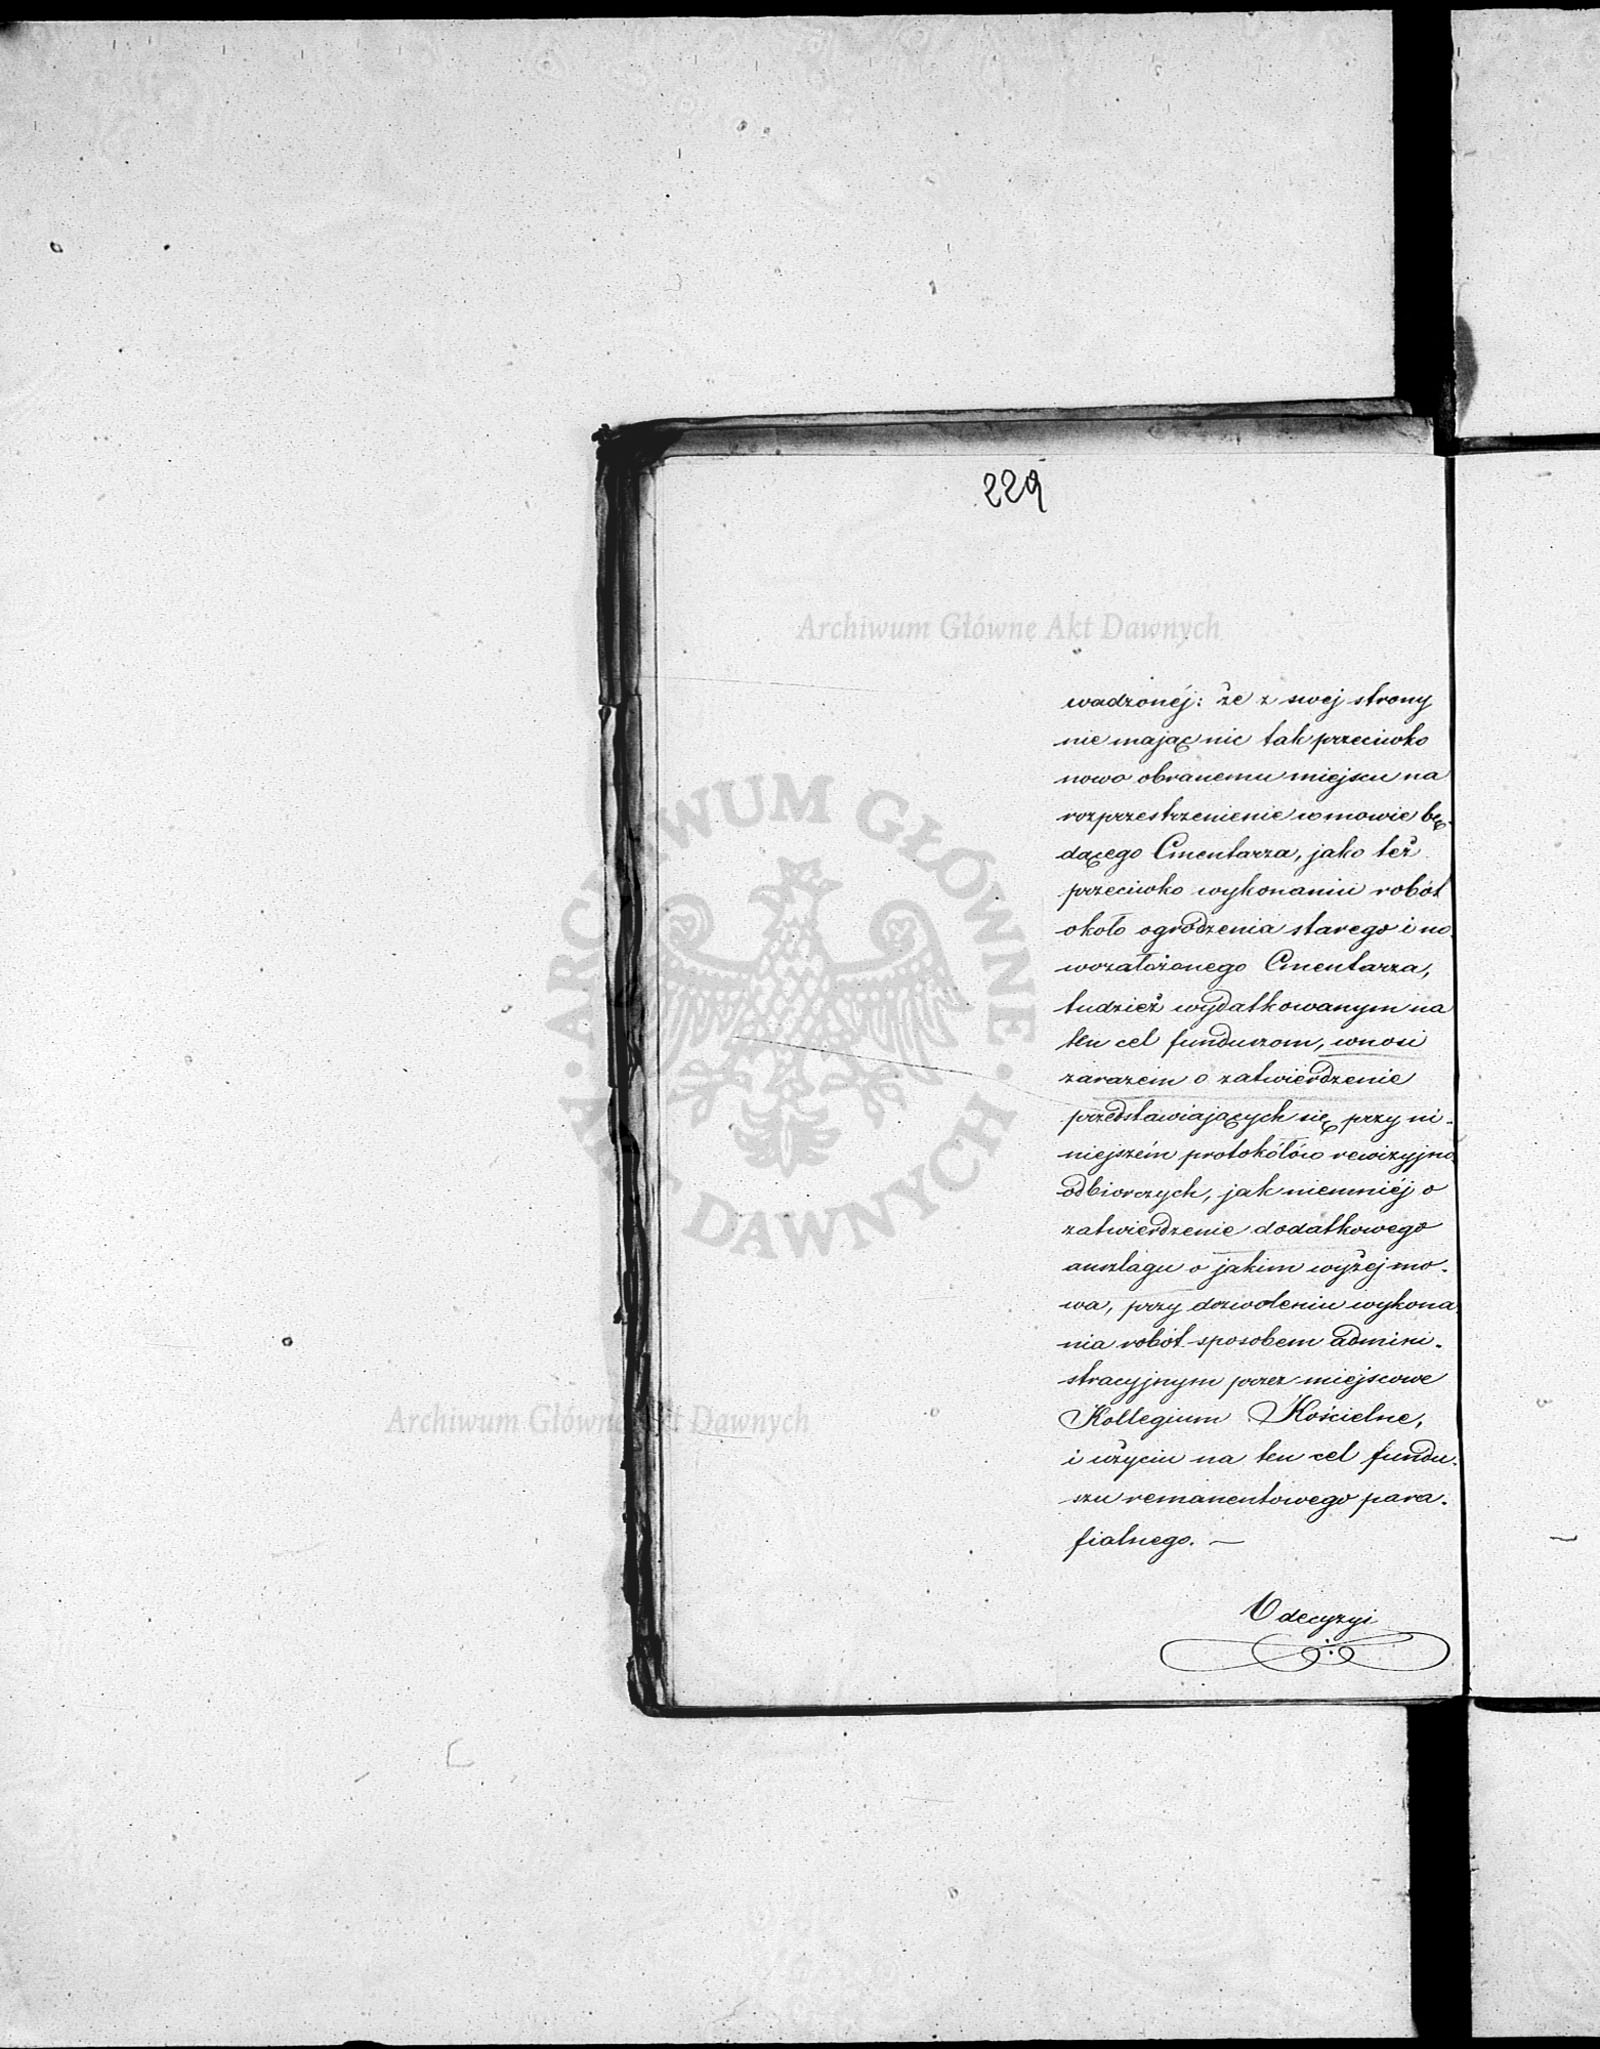 229
Archiwum Główne Akt Dawnych
wadzonéj: że z swej strony
nie mając nic tak przeciwko
nowo obranemu miejscu na
rozprzestrzenienie w mowie bę-
dącego Cmentarza, jako też
przeciwko wykonaniu robót
około ogrodzenia starego i no-
wozałożonego Cmentarza,
tudzież wydatkowanym na
ten cel funduszom, wnosi
zarazem o zatwierdzenie
przedstawiających się przy ni-
niejszém protokółów rewizyjno
odbiorczych, jak niemniéj o
zatwierdzenie dodatkowego
anszlagu o jakim wyżej mo-
wa, przy dozwoleniu wykona-
nia robót sposobem admini-
stracyjnym przez miejscowe
Kollegium Kościelne,
i użyciu na ten cel fundu-
szu remanentowego para-
fialnego. —
O decyzyi
ARCHIWUM GŁÓWNE · AKT DAWNYCH ·
Archiwum Główne Akt Dawnych